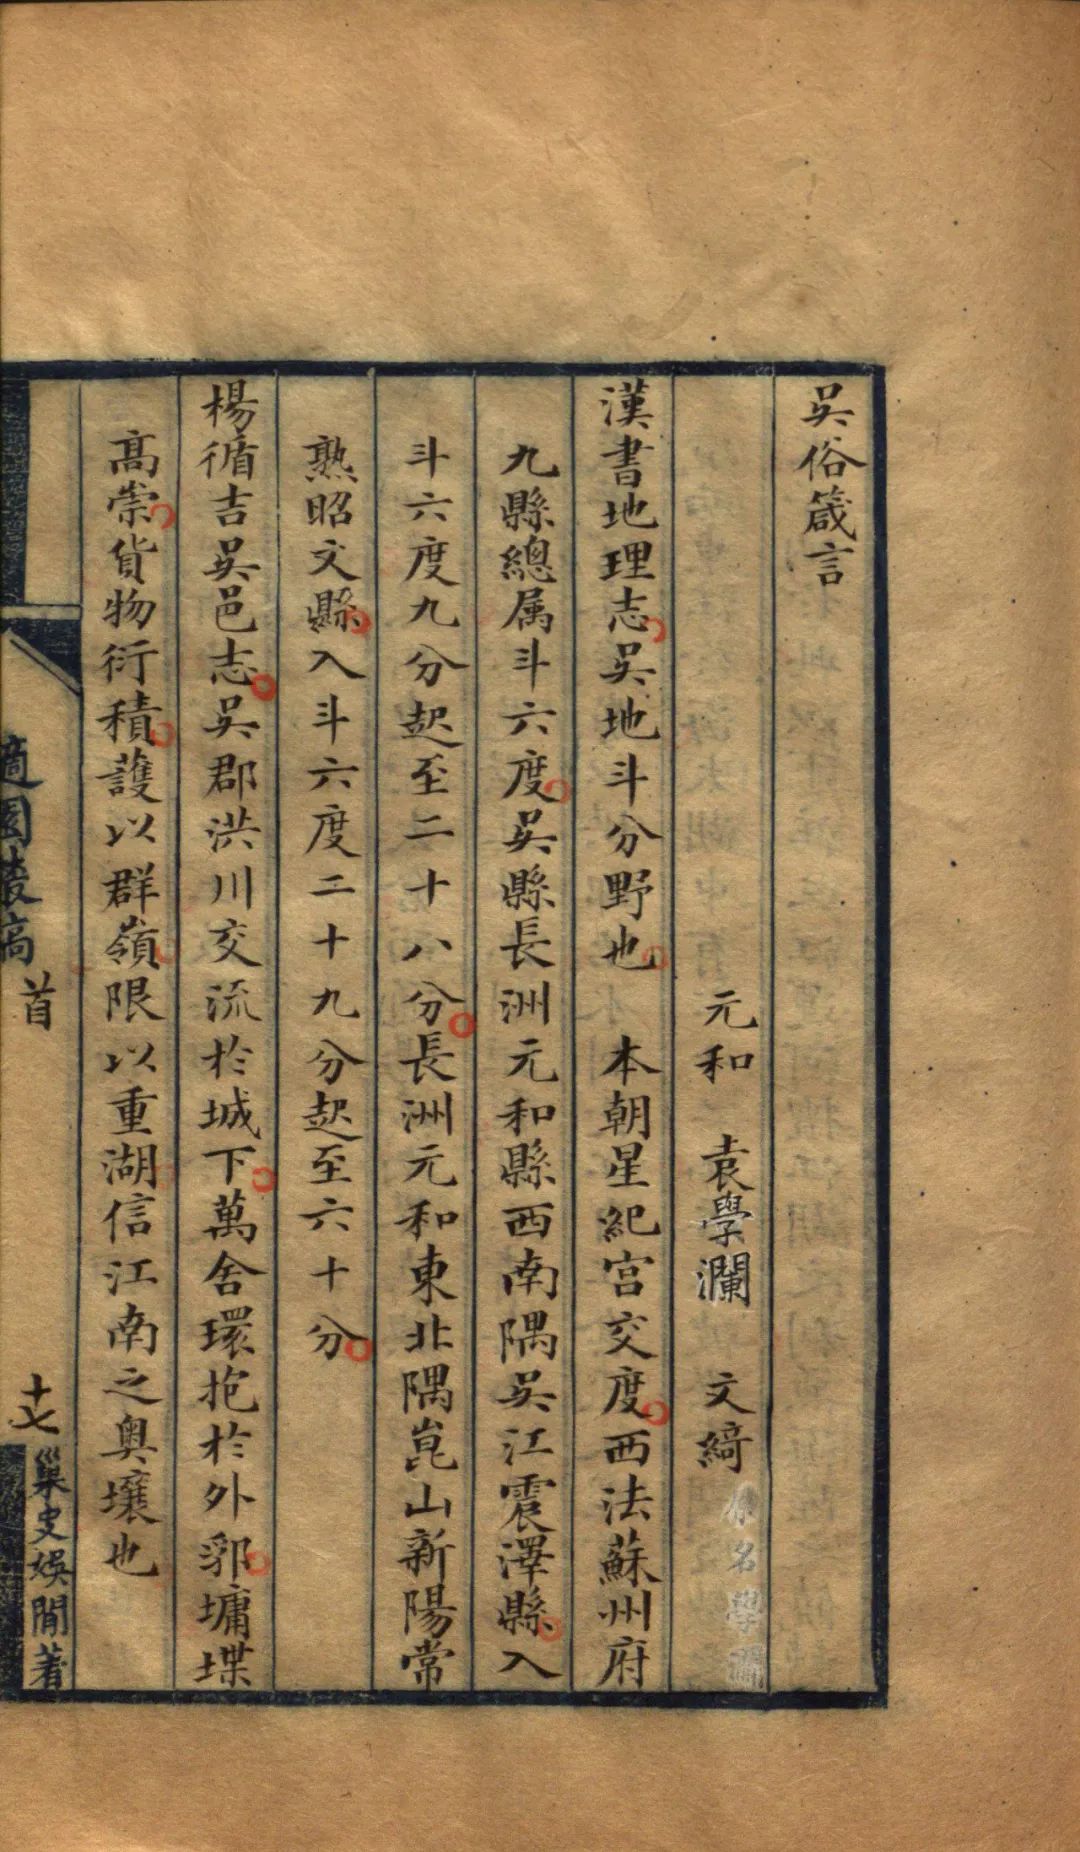 吳俗箴言
元和　袁學瀾　文綺　原名學瀾
漢書地理志吳地斗分野也　本朝星紀宮交度西法蘇州府
九縣總属斗六度吳縣長洲元和縣西南隅吳江震澤縣入
斗六度九分起至二十八分長洲元和東北隅崑山新陽常
熟昭文縣入斗六度二十九分起至六十分
楊循吉吳邑志吳郡洪川交流於城下萬舍環抱於外郛墉堞
高崇貨物衍積護以群嶺限以重湖信江南之奥壤也
適園叢稿　首　十七　巢史娛閒著